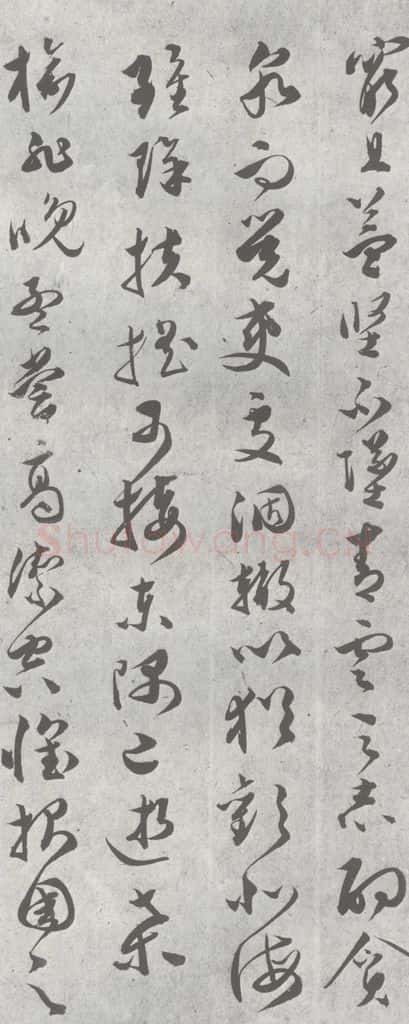 窮且益堅不墜青雲之志酌貪
泉而覺爽處涸轍以猶歡北海
雖賒扶搖可接東隅已逝桑
榆非晚孟嘗高潔空懷報國之
Shufawang.cn